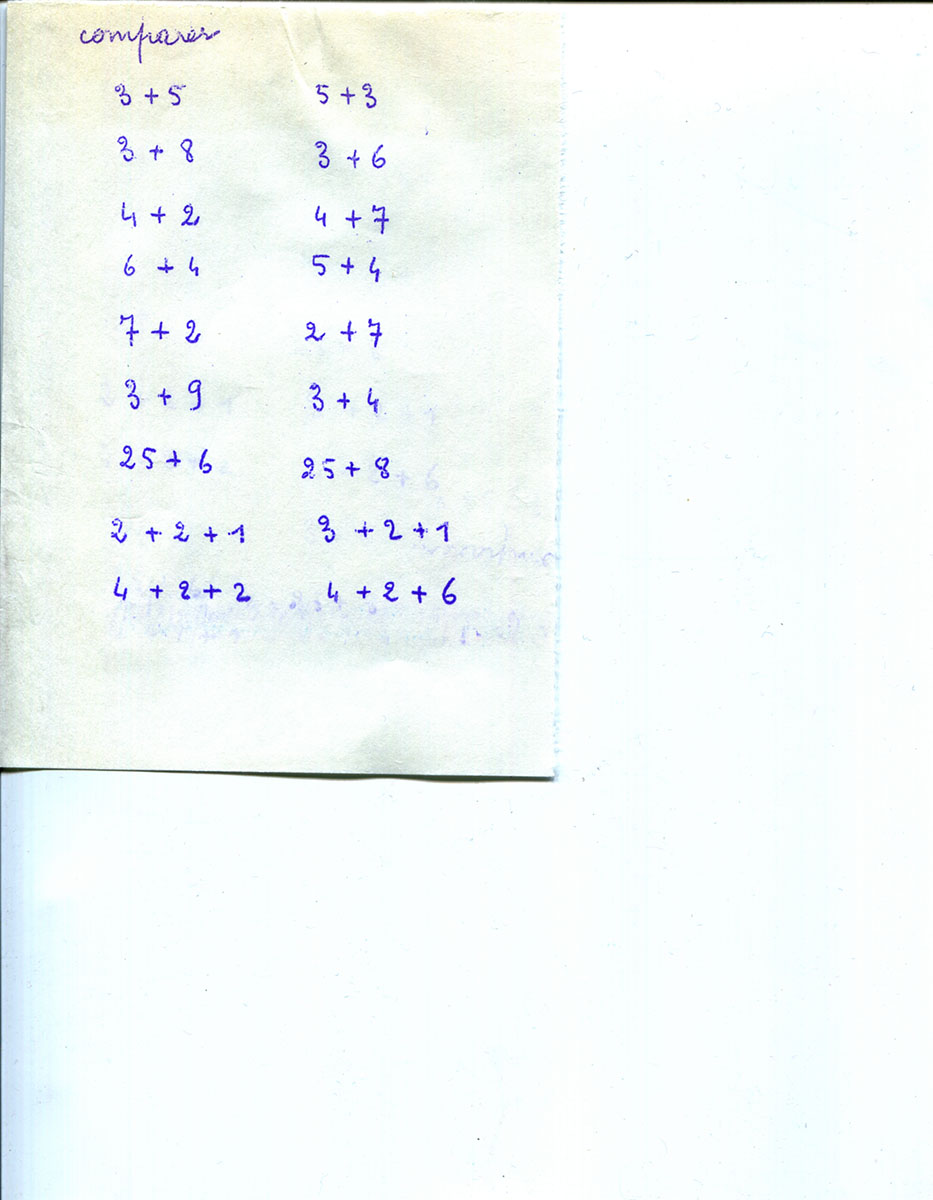 comparer
3 + 5 5 + 3
3 + 8 3 + 6
4 + 2 4 + 7
6 + 4 5 + 4
7 + 2 2 + 7
3 + 9 3 + 4
25 + 6 25 + 8
2 + 2 + 1 3 + 2 + 1
4 + 2 + 2 4 + 2 + 6